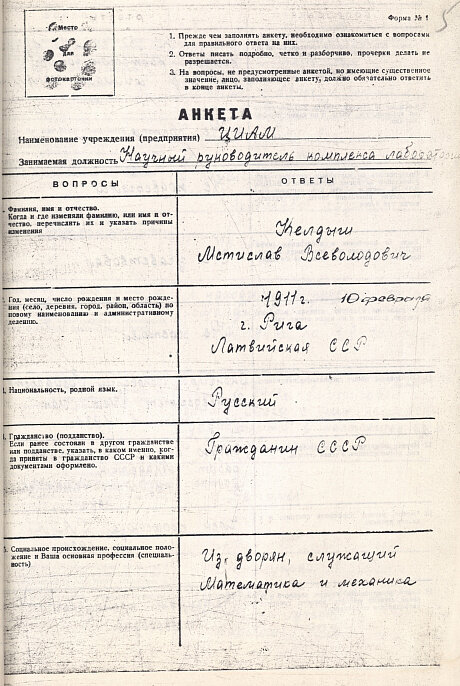 Форма № 1
5
Место
для
фотокарточки
1. Прежде чем заполнять анкету, необходимо ознакомиться с вопросами
для правильного ответа на них.
2. Ответы писать подробно, четко и разборчиво, прочерки делать не
разрешается.
3. На вопросы, не предусмотренные анкетой, но имеющие существенное
значение, лицо, заполняющее анкету, должно обязательно ответить
в конце анкеты.
АНКЕТА
Наименование учреждения (предприятия) ЦИАМ
Занимаемая должность Научный руководитель комплекса лаборатории
ВОПРОСЫ
ОТВЕТЫ
Фамилия, имя и отчество.
Когда и где изменяли фамилию, или имя и от-
чество, перечислить их и указать причины
изменения
Келдыш
Мстислав Всеволодович
Год, месяц, число рождения и место рожде-
ния (село, деревня, город, район, область) по
новому наименованию и административному
делению.
1911 г. 10 февраля
г. Рига
Латвийская ССР
Национальность, родной язык.
Русский
Гражданство (подданство).
Если ранее состояли в другом гражданстве
или подданстве, указать, в каком именно, ког-
да приняты в гражданство СССР и какими
документами оформлено.
Гражданин СССР
5. Социальное происхождение, социальное поло-
жение и Ваша основная профессия (специаль-
ность)
Из дворян, служащий
Математика и механика